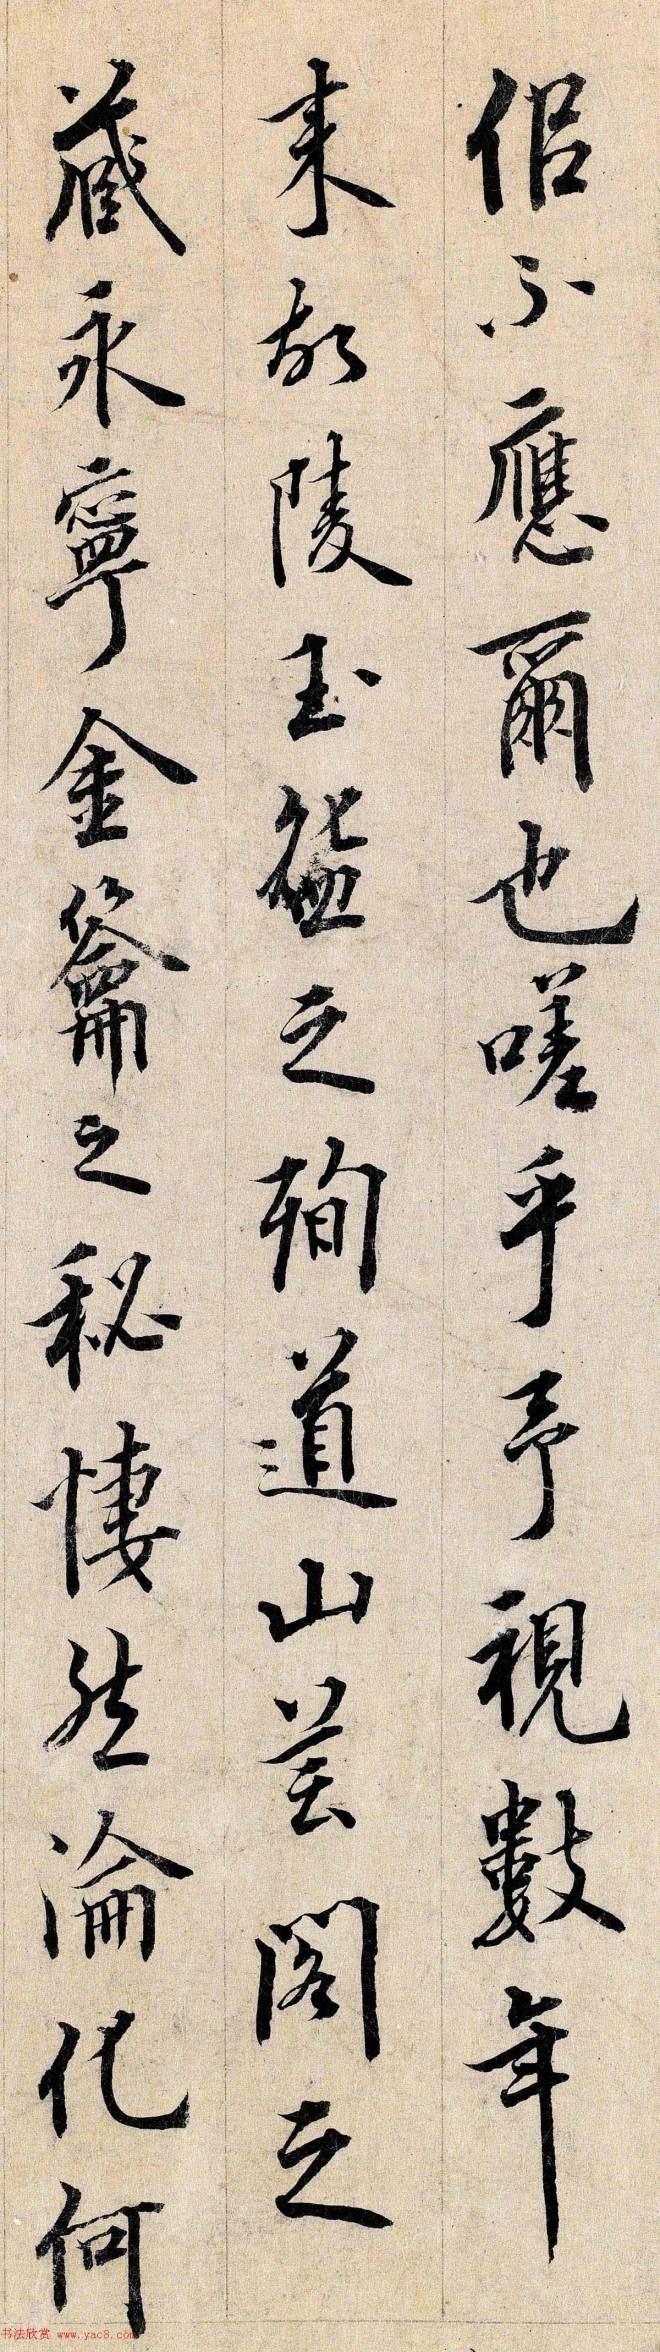 侶不應爾也嗟乎予視數年
来故陵玉匳之殉道山芸閣之
蔵永寧金籥之秘悽然淪化何
书法欣赏 www.yac8.com